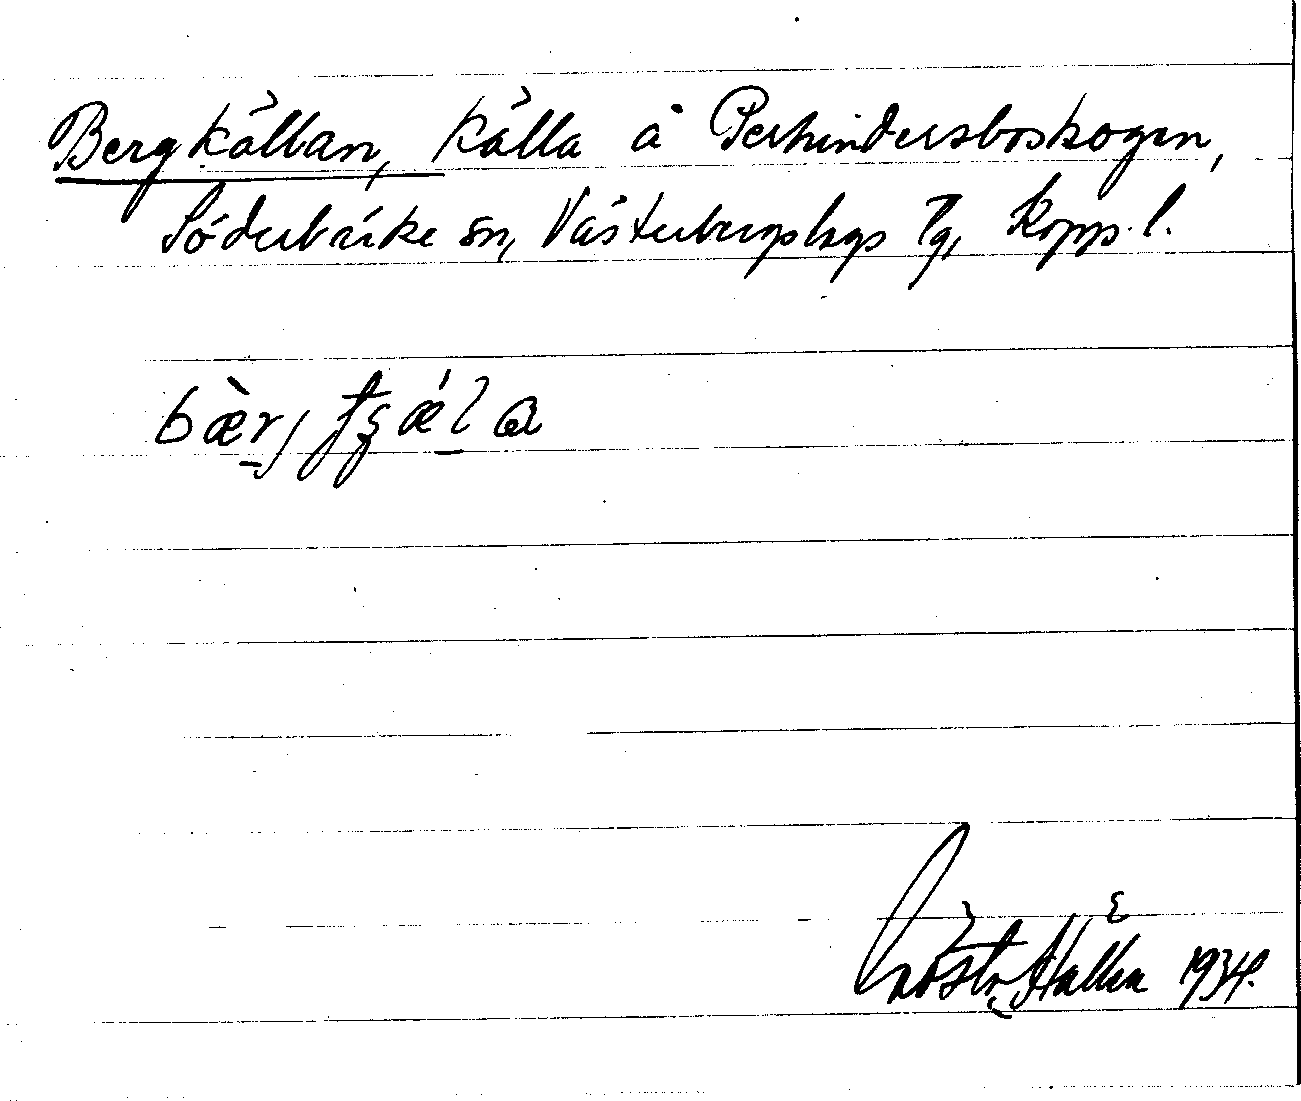 Bergkällan, källa å Perhindersboskogen,
Söderbärke sn, Västerbergslags tg, Kopp. l.
bæ̀rj tʂǽla
1934.